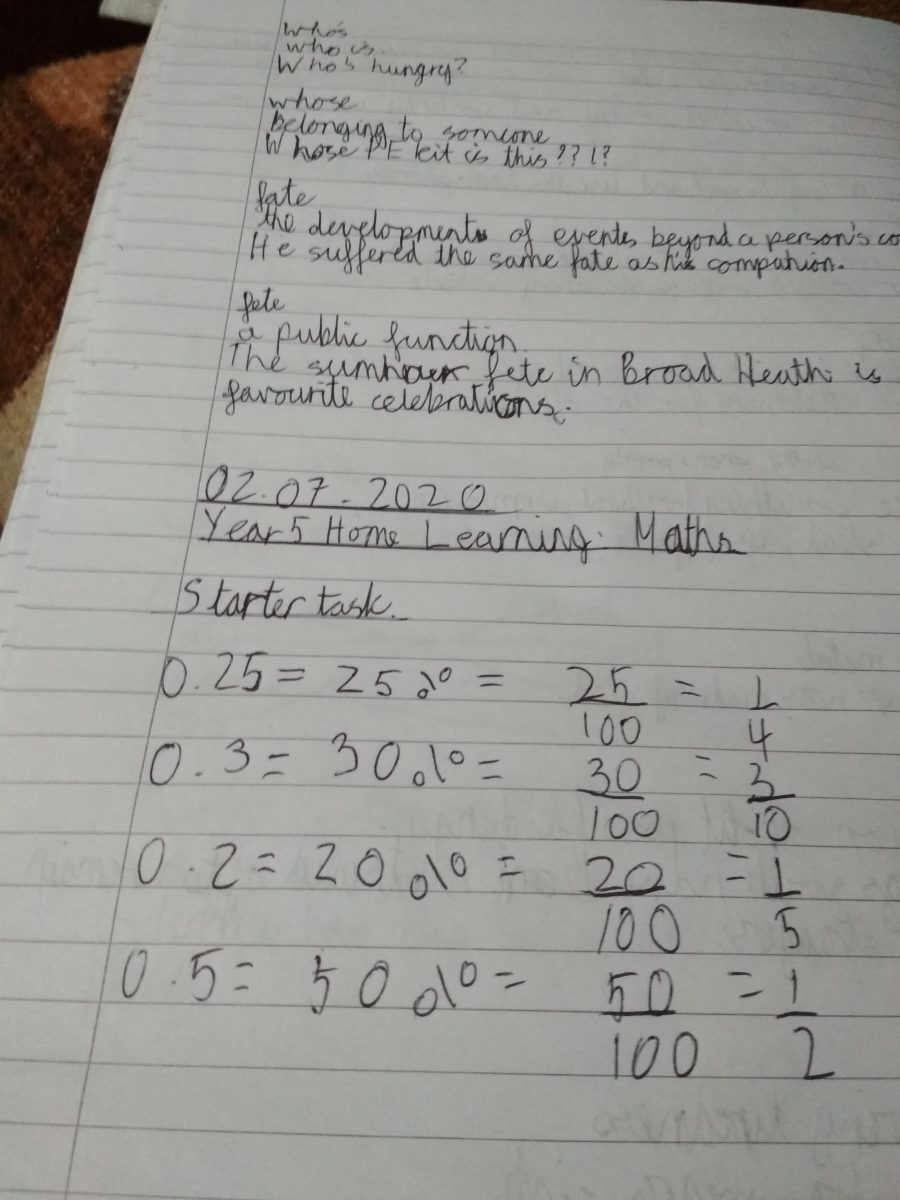 who's
who is.
Who's hungry?
whose
belonging to someone
Whose PE kit is this??!?
fate
the developments of events beyond a person's co
He suffered the same fate as his companion.
fete
a public function
The summer fete in Broad Heath is
favourite celebrations.
02.07.2020
Year 5 Home Learning: Maths
Starter task.
0.25 = 25% = 25/100 = 1/4
0.3 = 30% = 30/100 = 3/10
0.2 = 20% = 20/100 = 1/5
0.5 = 50% = 50/100 = 1/2